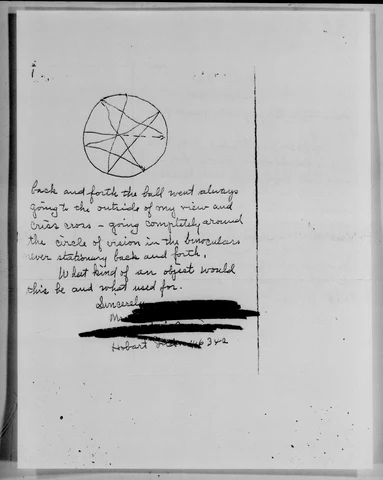 back and forth the ball went always
going to the outside of my view and
criss cross - going completely around
the circle of vision in the binoculars
never stationary back and forth.
What kind of an object would
this be and what used for.
Sincerely
Hobart